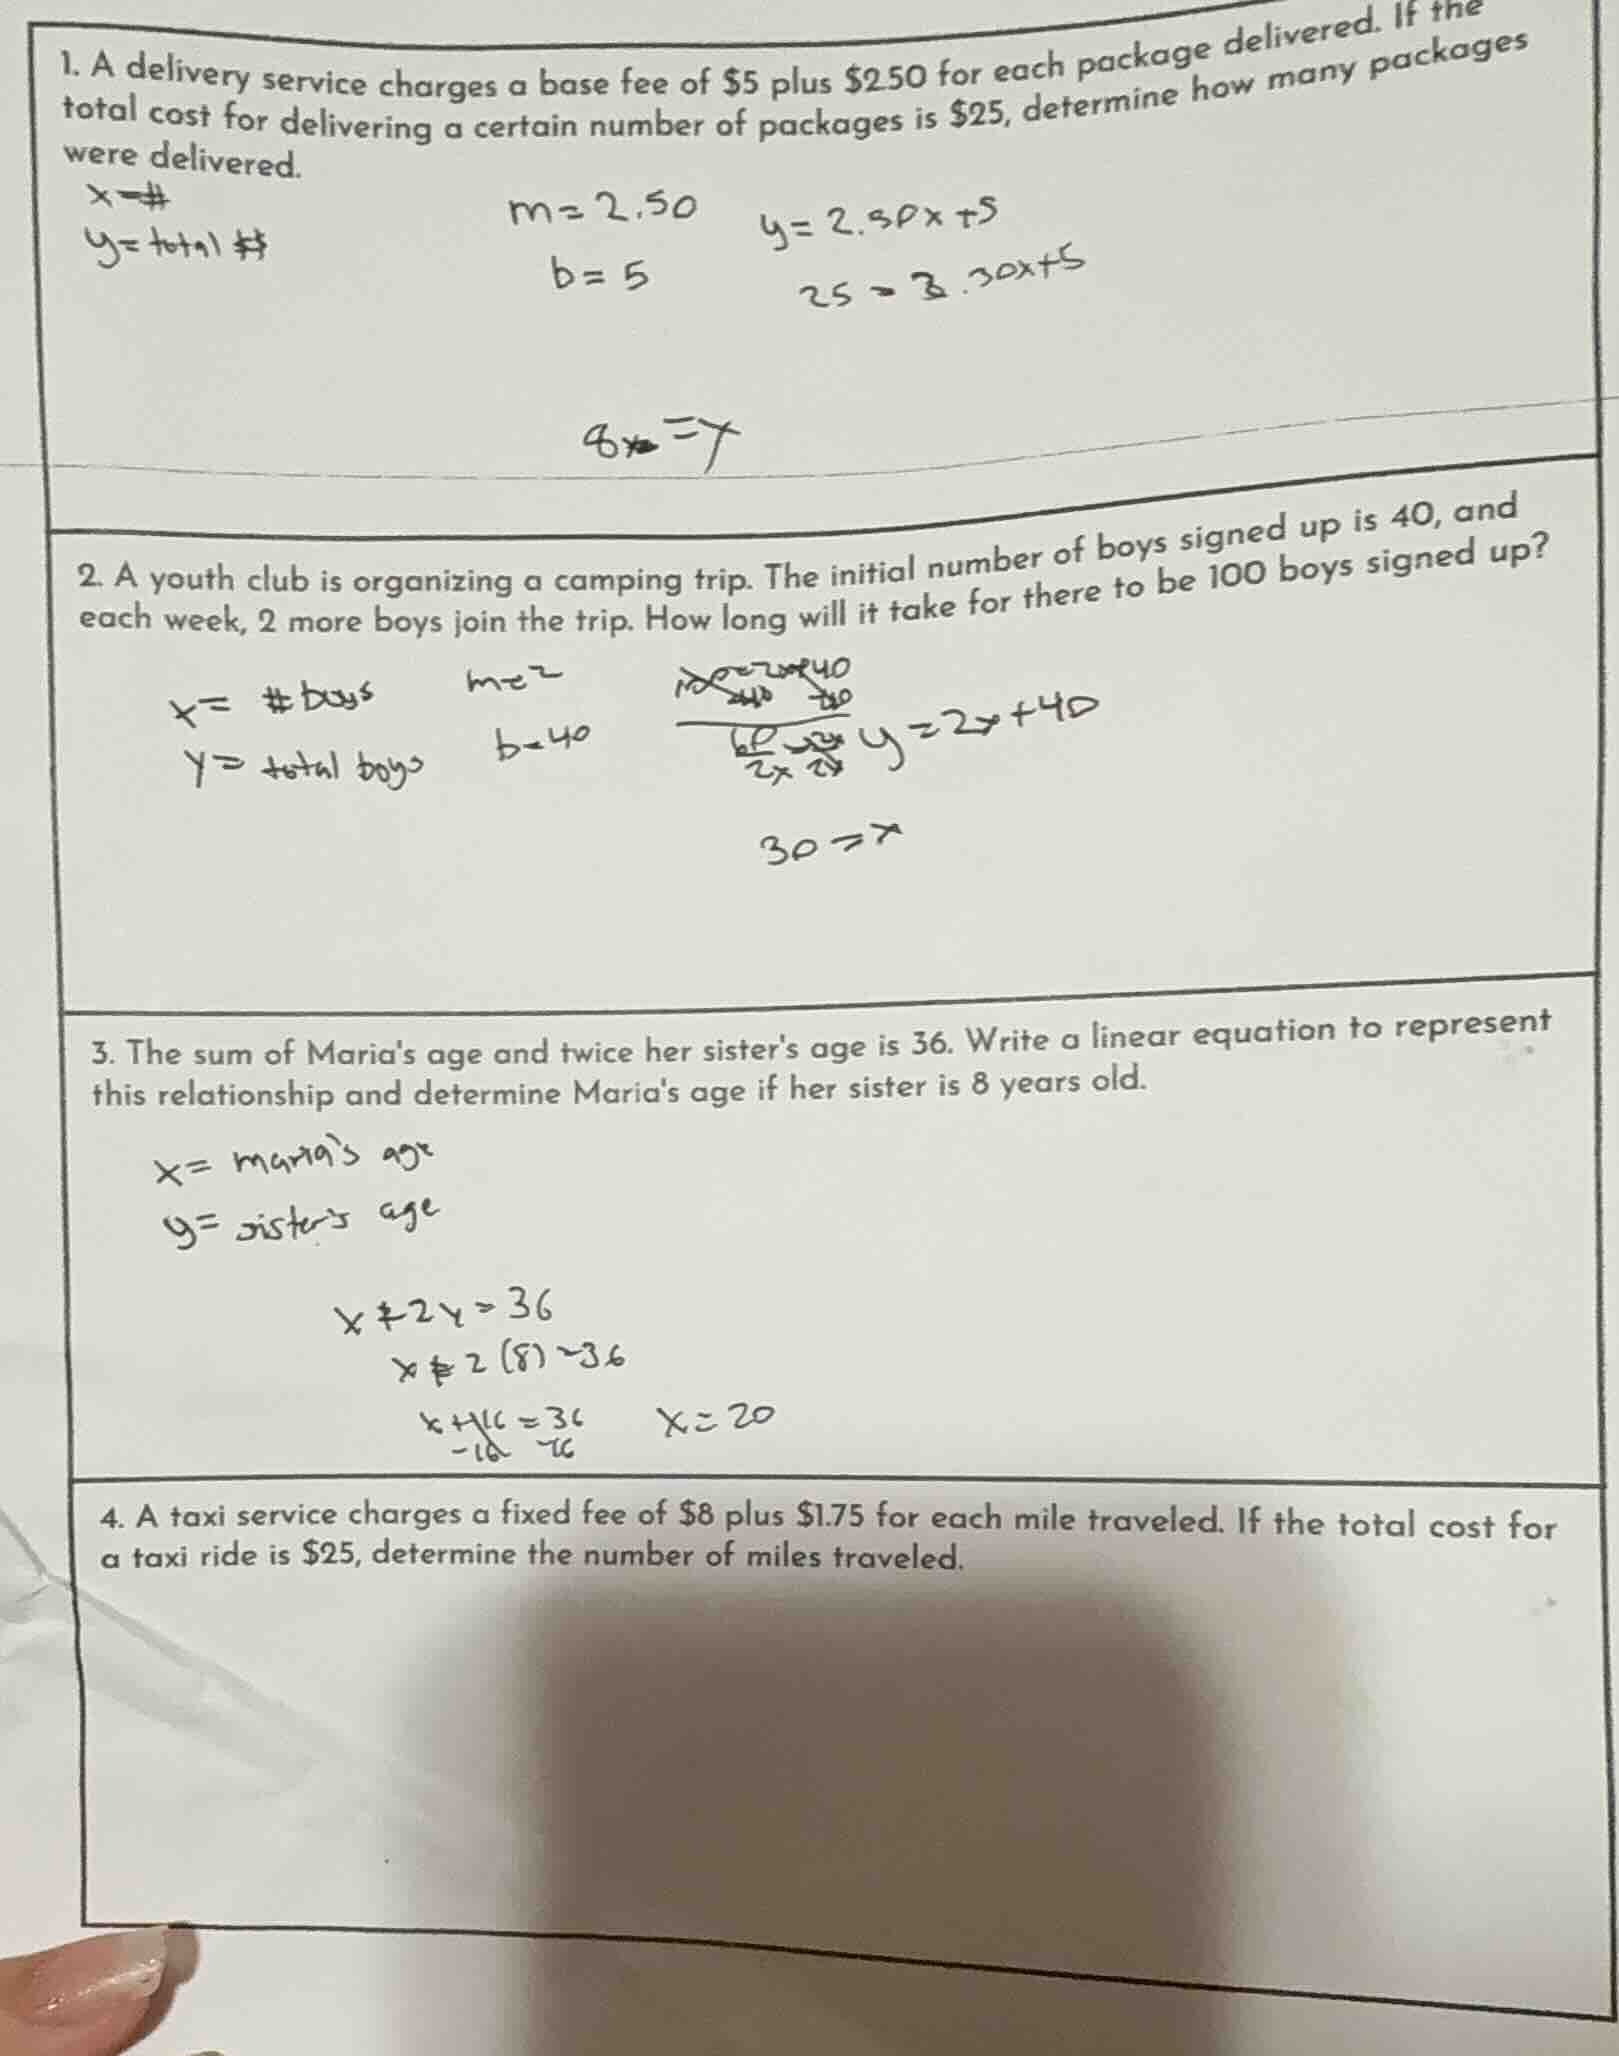 1. A delivery service charges a base fee of $5 plus $2.50 for each package delivered. If the
total cost for delivering a certain number of packages is $25, determine how many packages
were delivered.
x=#
y=total #
m=2.50
b=5
y=2.50x+5
25=2.50x+5
8=x
2. A youth club is organizing a camping trip. The initial number of boys signed up is 40, and
each week, 2 more boys join the trip. How long will it take for there to be 100 boys signed up?
x= # boys
y= total boys
m=2
b=40
y=2x+40
30=x
3. The sum of Maria's age and twice her sister's age is 36. Write a linear equation to represent
this relationship and determine Maria's age if her sister is 8 years old.
x= maria's age
y= sister's age
x+2y=36
x+2(8)=36
x+16=36
-16 -16
x=20
4. A taxi service charges a fixed fee of $8 plus $1.75 for each mile traveled. If the total cost for
a taxi ride is $25, determine the number of miles traveled.